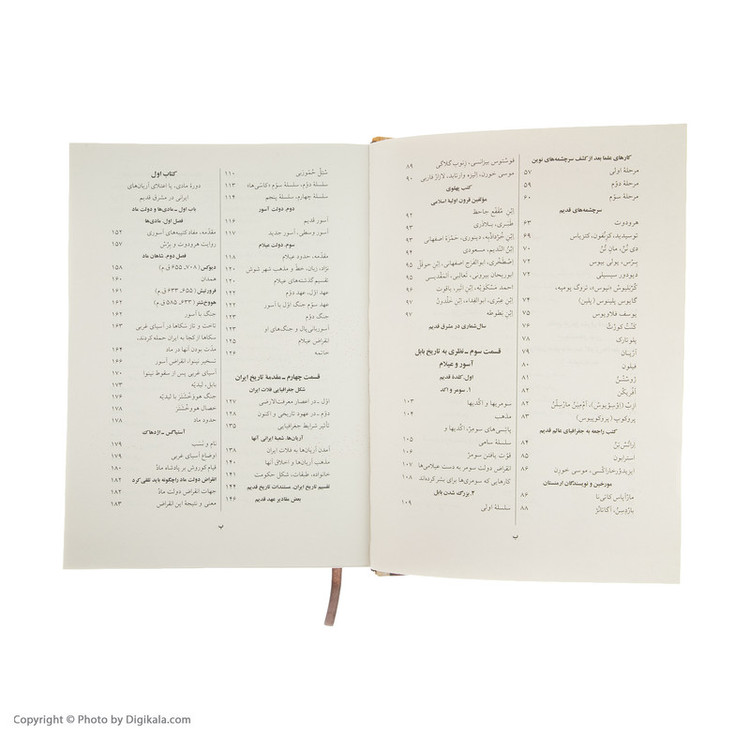 کارهای علما بعد از کشف سرچشمه‌های نوین
مرحلهٔ اولی ۵۷
مرحلهٔ دوّم ۵۹
مرحلهٔ سوّم ۶۰
سرچشمه‌های قدیم
هرودوت ۶۳
توسیدید، کزنفون، کتزیاس ۶۹
پُلی‌بیوس
دیودور سیسیلی ۷۲
یوسف فلاویوس ۷۵
کُنْت کورْث ۷۶
پلوتارک ۷۸
آرّیان ۷۹
فیلون ۸۰
ژوستَنْ ۸۱
۸۲
پروکوپ (پروکوپیوس) ۸۴
کتب راجعه به جغرافیای عالم قدیم
استرابون ۸۵
موسی خورن ۸۶
مورخین و نویسندگان ارمنستان
۸۸
فوستوس بیزانسی، زنوب گلاکی ۸۹
موسی خورن، الیزه وارتابد، لازار فاربی ۹۰
کتب پهلوی
مؤلفین قرون اولیهٔ اسلامی
اِبْنِ مُقَفّع جاحظ ۹۲
طَبَری، بلاذری ۹۲
اِبْنِ خُرْدادْبِه، دینوری، حمزهٔ اصفهانی ۹۳
اِبْنِ النّدیم، مسعودی ۹۴
اِصْطَخْری، ابوالفرج اصفهانی، اِبْنِ حوقل ۹۵
ابوریحان بیرونی، ثعالبی، ابن‌البلخی ۹۵
احمد مسکویه، اِبْنِ اثیر، یاقوت ۹۶
اِبْنِ عِبْری، ابوالفداء، اِبْنِ خلدون ۹۷
اِبْنِ بطوطه ۹۷
سال‌شماری در مشرق قدیم
قسمت سوم ـ نظری به تاریخ بابل
آسور و عیلام
اول. کلدهٔ قدیم
۱. سومر و اکد
سومریها و اکّدیها ۱۰۳
مذهب ۱۰۴
پاتسی‌های سومر، اکّدیها و
سلسلهٔ سامی ۱۰۵
قوّت یافتن سومر ۱۰۶
انقراض دولت سومر به دست عیلامی‌ها ۱۰۷
کارهایی که سومری‌ها برای بشر کرده‌اند ۱۰۸
۲. بزرگ شدن بابل
سلسلهٔ اولی ۱۰۹
ب
۱۱۰
سلسلهٔ دوّم، سلسلهٔ سوّم (کاشی‌ها) ۱۱۳
سلسلهٔ چهارم، سلسلهٔ پنجم ۱۱۴
دوم. دولت آسور
آسور قدیم ۱۱۶
آسور وسطی، آسور جدید ۱۱۷
سوم. دولت عیلام
مقدّمه، حدود عیلام ۱۱۸
نژاد، زبان، خط و مذهب شهر شوش ۱۲۰
تقسیم گذشته‌های عیلام ۱۲۰
عهد اوّل، عهد دوّم ۱۲۲
عهد سوّم جنگ اوّل با آسور ۱۲۲
جنگ دوّم ۱۲۳
آسوربانی‌پال و جنگ‌های او ۱۲۳
انقراض عیلام ۱۲۵
خاتمه ۱۲۶
قسمت چهارم ـ مقدمهٔ تاریخ ایران
شکل جغرافیایی فلات ایران
اوّل ـ در اعصار معرفت‌الارضی ۱۲۷
دوّم ـ در عهود تاریخی و اکنون ۱۲۸
تأثیر شرایط جغرافیایی ۱۳۵
آریان‌ها، شعبهٔ ایرانی آنها
آمدن آریان‌ها به فلات ایران ۱۳۸
مذهب آریان‌ها و اخلاق آنها ۱۴۰
خانواده، طبقات، شکل حکومت ۱۴۱
تقسیم تاریخ ایران، مستندات تاریخ قدیم ۱۴۴
بعض مقادیر عهد قدیم ۱۴۶
کتاب اول
دورهٔ مادی، یا اعتلای آریان‌های
ایرانی در مشرق قدیم
باب اول ـ مادی‌ها و دولت ماد
فصل اول. مادی‌ها
مقدّمه، مفاد کتیبه‌های آسوری ۱۵۴
روایت هرودوت و بِرُسْ ۱۵۷
فصل دوم. شاهان ماد
دیوکِس (۷۰۸ـ۶۵۵ ق.م) ۱۵۸
همدان ۱۶۰
فرورتیش (۶۵۵ـ۶۳۳ ق.م) ۱۶۱
هووخ‌شتر (۶۳۳ـ۵۸۵ ق.م) ۱۶۲
جنگ با آسور ۱۶۲
تاخت و تاز سکاها در آسیای غربی ۱۶۳
سکاها از کجا به ایران حمله کردند.
مدّت بودن آنها در ماد ۱۶۴
تسخیر نینوا، انقراض آسور ۱۶۷
آسیای غربی پس از سقوط نینوا ۱۷۰
بابل، لیدیّه ۱۷۳
جنگ هووخْشَتَر با لیدیّه ۱۷۶
خصال هووخْشَتَر ۱۷۸
حدود ماد ۱۷۸
آستیاکس ـ اژدهاک
نام و نسب ۱۷۹
اوضاع آسیای غربی ۱۷۹
قیام کوروش بر پادشاه مادْ ۱۸۰
انقراض دولت ماد را چگونه باید تلقی کرد ۱۸۲
جهات انقراض دولت مادْ ۱۸۲
معنی و نتیجهٔ این انقراض ۱۸۳
پ
Copyright © Photo by Digikala.com